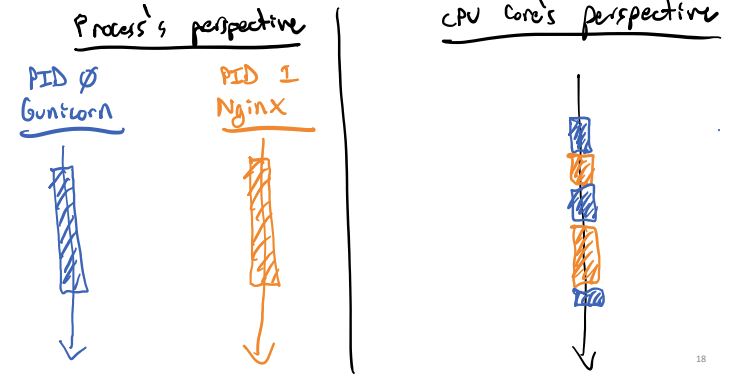 Process's perspective
PID 0
Gunicorn
PID 1
Nginx
CPU Core's perspective
18